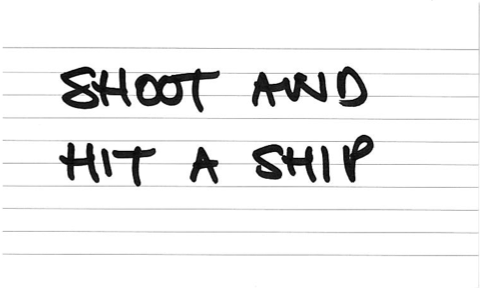 SHOOT AND
HIT A SHIP